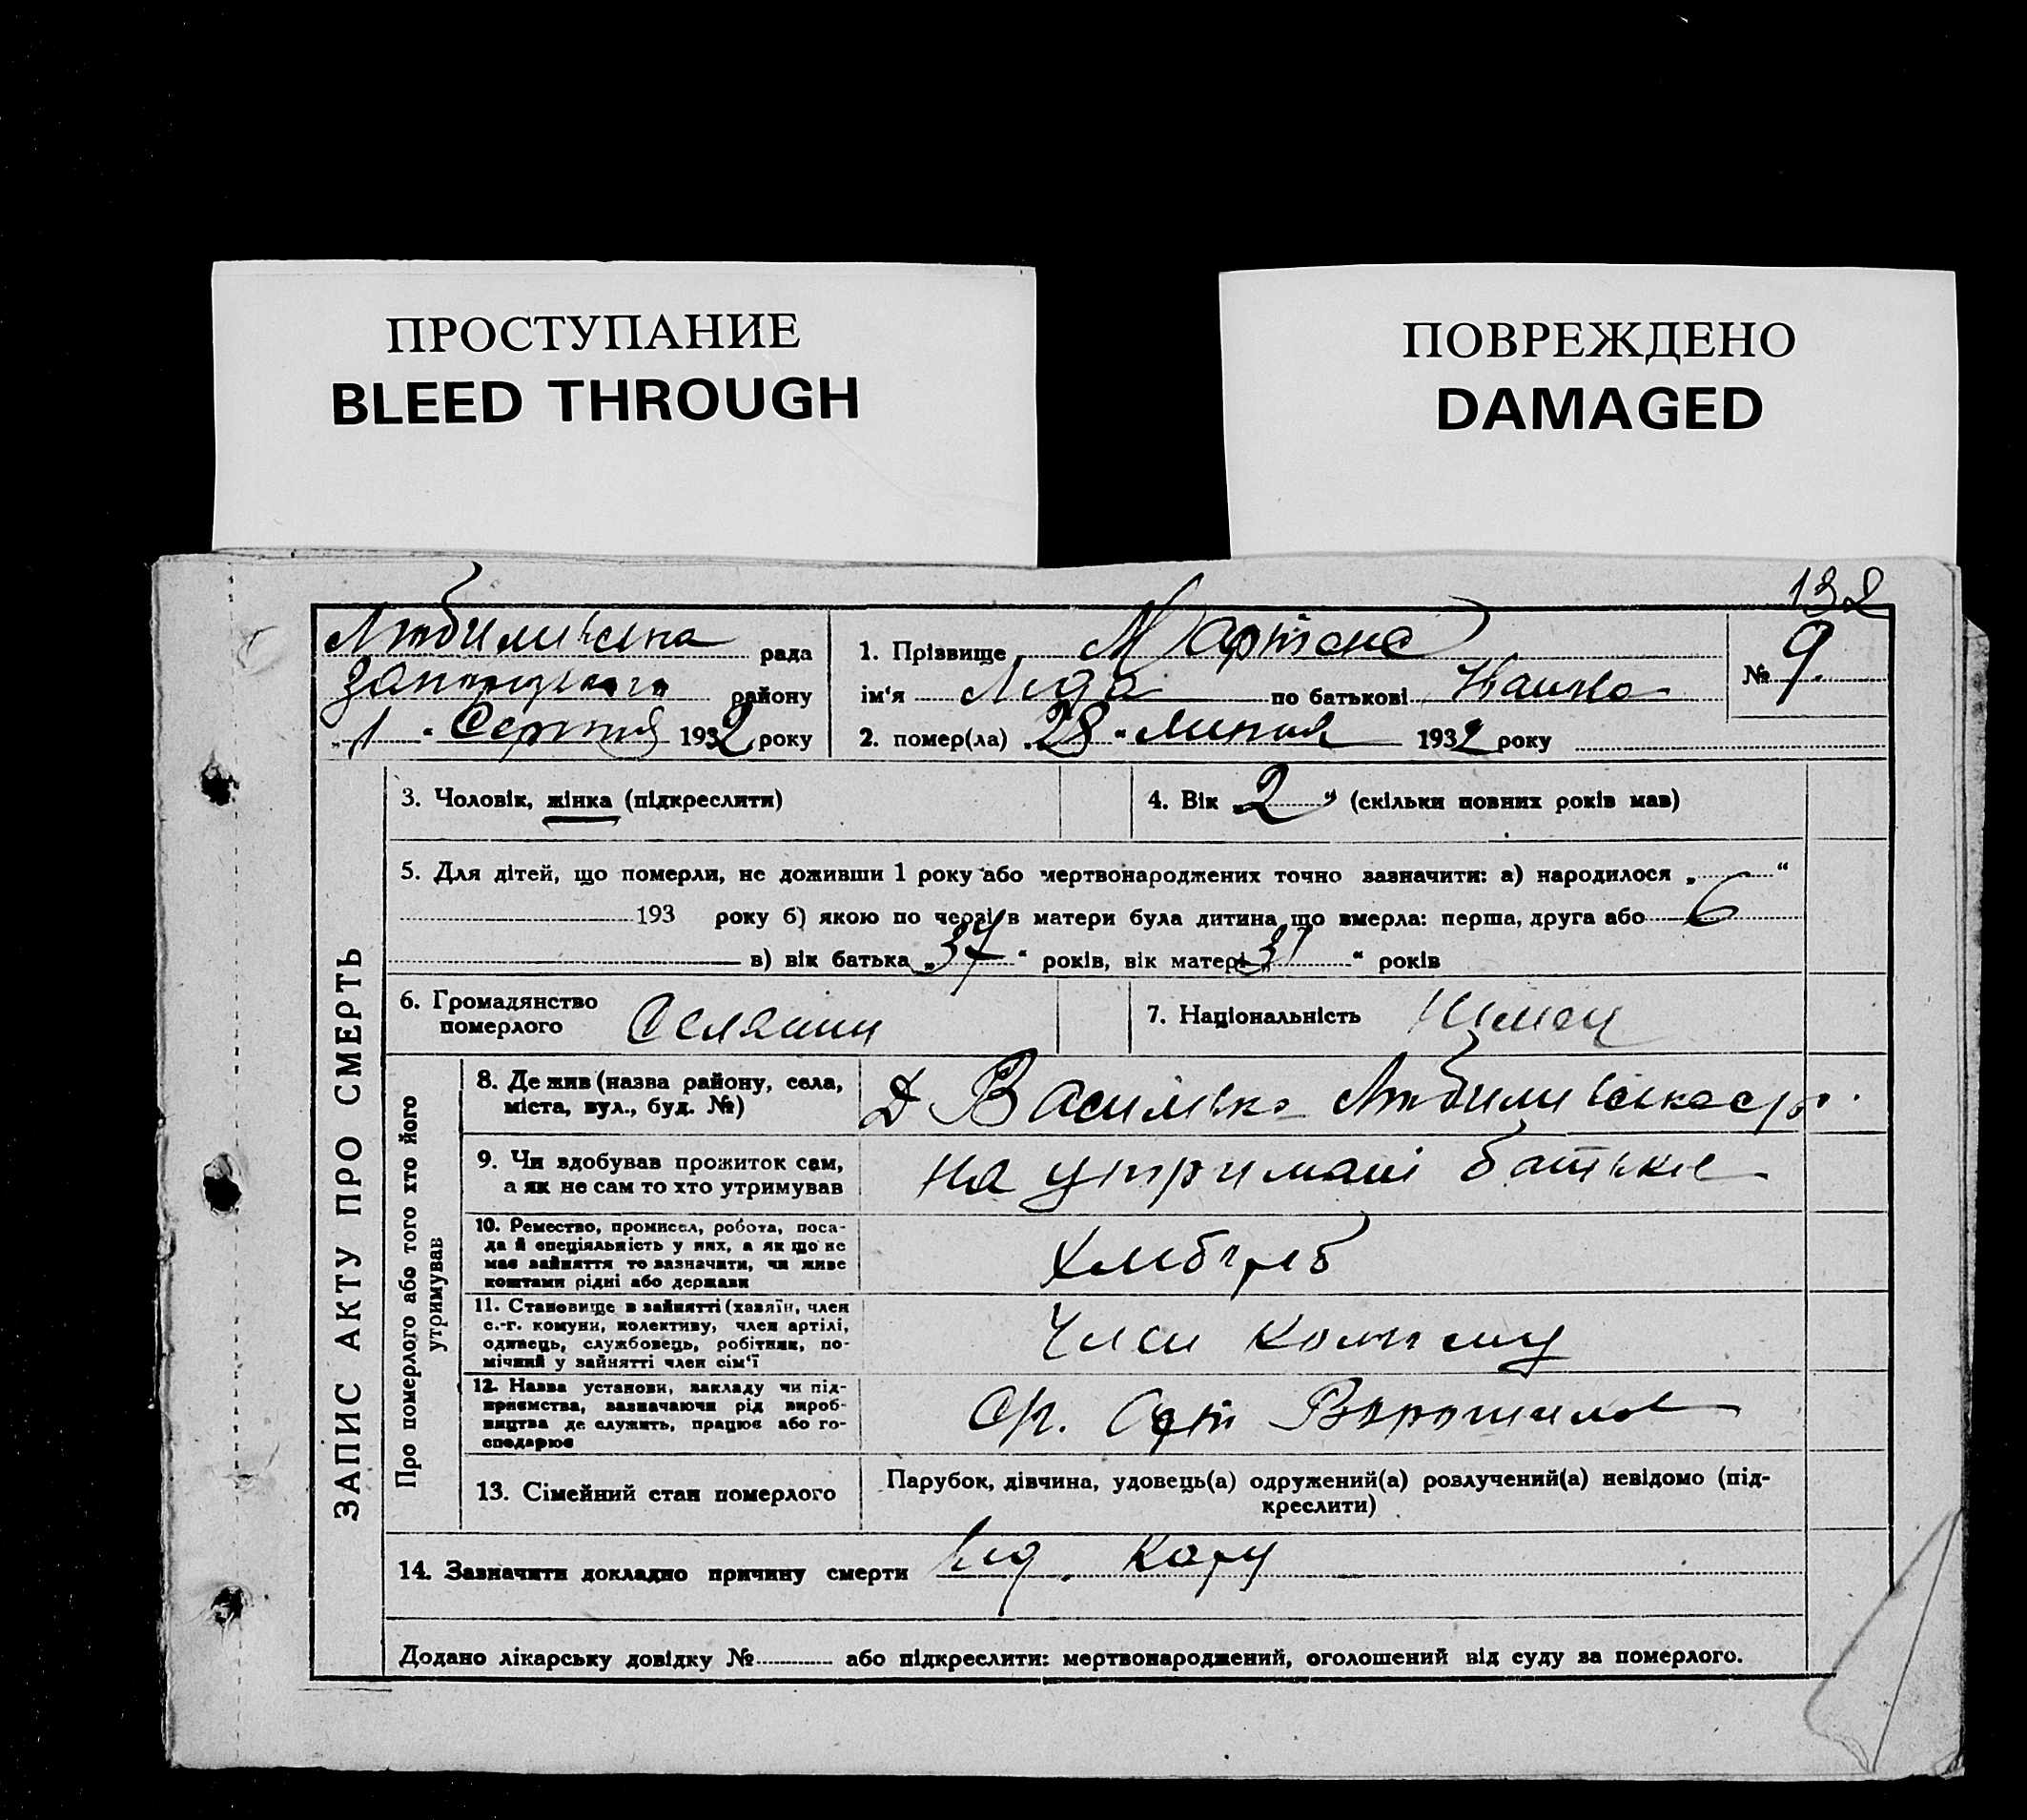 ПРОСТУПАНИЕ
BLEED THROUGH
ПОВРЕЖДЕНО
DAMAGED
132
Любимівська рада
району
„1“ Серпня 1932 року
1. Прізвище
ім'я Ліда по батькові
№ 9.
2. помер(ла) „28“ Липня 1932 року
ЗАПИС АКТУ ПРО СМЕРТЬ
3. Чоловік, жінка (підкреслити)
4. Вік „2“ (скільки повних років мав)
5. Для дітей, що померли, не доживши 1 року або мертвонароджених точно зазначити: а) народилося „ “
193 року б) якою по черзі в матери була дитина що вмерла: перша, друга або 6
в) вік батька „37“ років, вік матері „31“ років
6. Громадянство
померлого Селянин
7. Національність Німец
Про померлого або того хто його
утримував
8. Де жив (назва району, села,
міста, вул., буд. №)
9. Чи здобував прожиток сам,
а як не сам то хто утримував
на утримані батька
10. Ремество, промисел, робота, поса-
да й спеціяльність у них, а як що не
має зайняття то зазначити, чи живе
коштами рідні або держави
Хлібороб
11. Становище в зайнятті (хазяїн, член
с.-г. комуни, колективу, член артілі,
одинець, службовець, робітник, по-
мічний у зайнятті член сім'ї
Член
12. Назва установи, закладу чи під-
приємства, зазначаючи рід вироб-
ництва де служить, працює або го-
сподарює
Ворошилова
13. Сімейний стан померлого
Парубок, дівчина, удовець(а) одружений(а) розлучений(а) невідомо (під-
креслити)
14. Зазначити докладно причину смерти від. Кору
Додано лікарську довідку № або підкреслити: мертвонароджений, оголошений від суду за померлого.